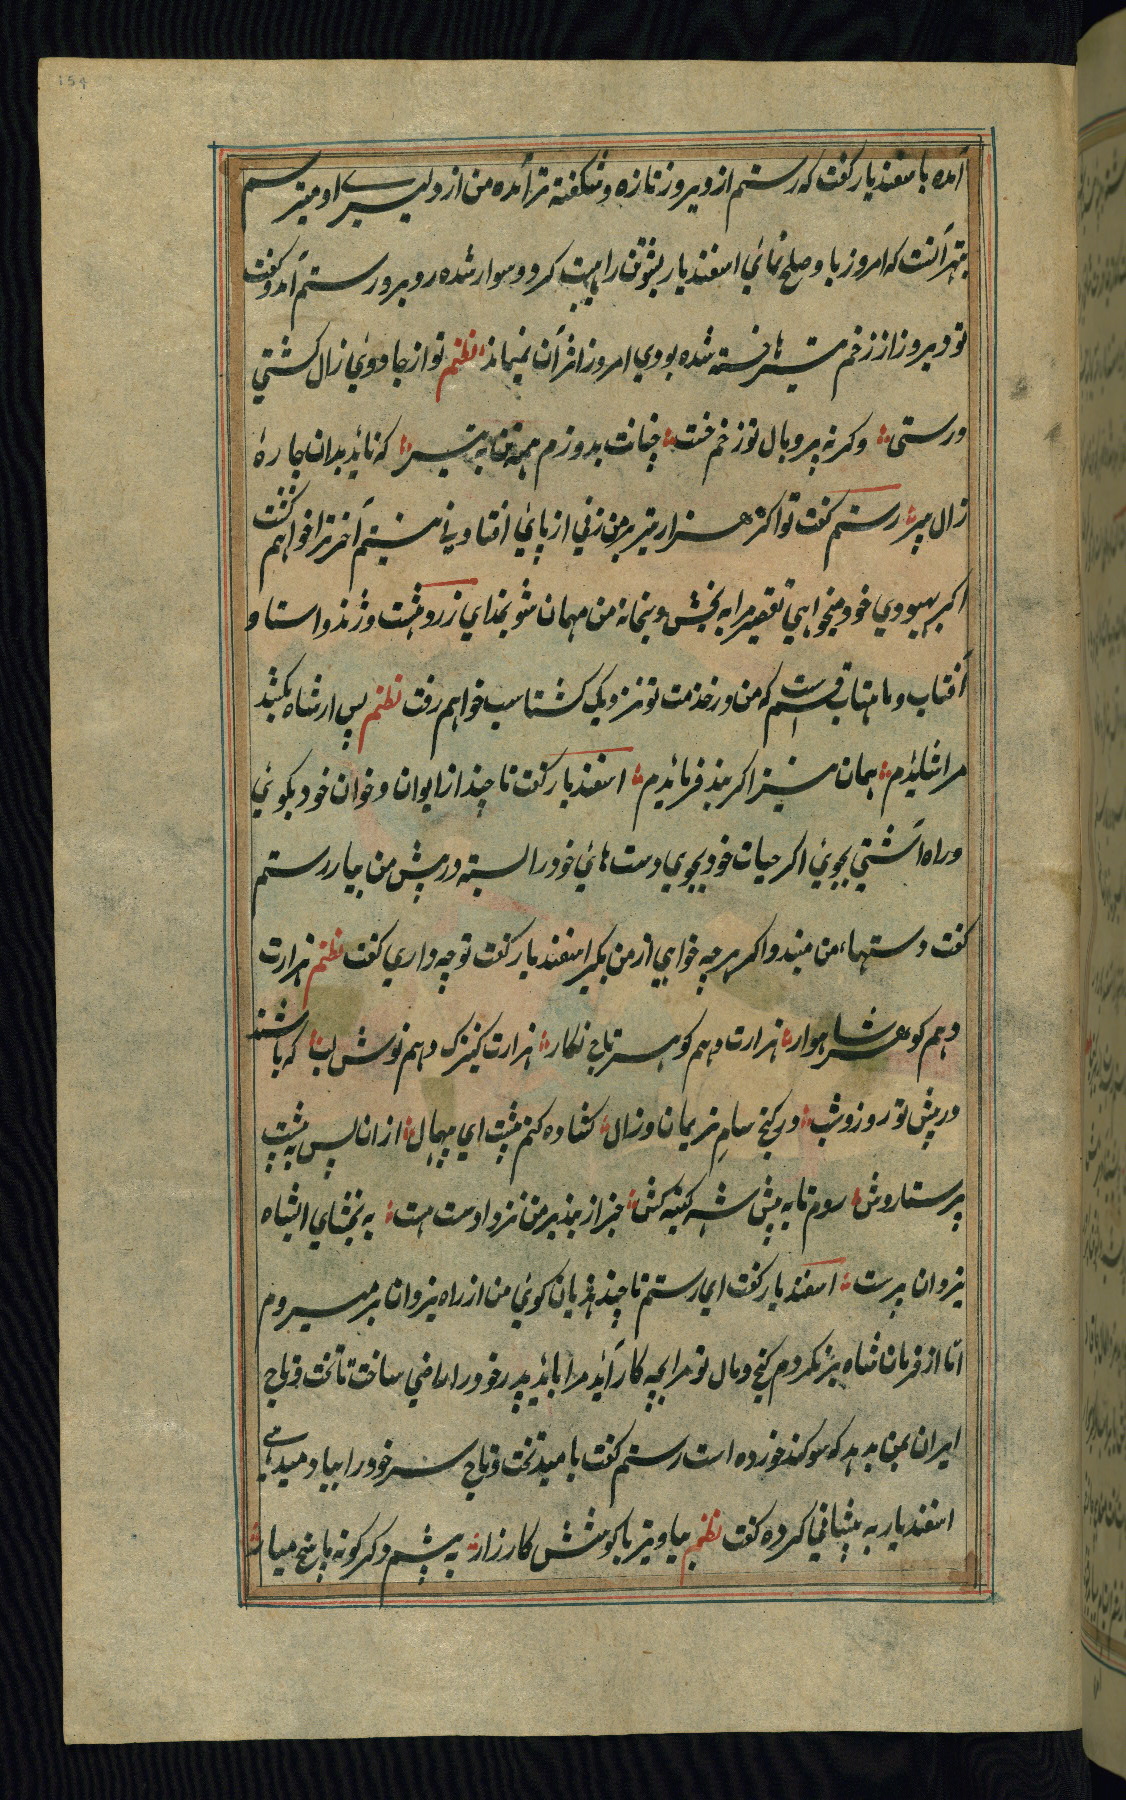 154
آمده باسفندیار گفت که رستم از دیروز تازه و شگفته تر آمده من از دلیری او میترسم
بهتر آنست که امروز باو صلح نمائی اسفندیار پشوتن را هیبت کرد و سوار شده روبروی رستم آمد و گفت
تو دیروز از زخم تیرها خسته شده بودی امروز اثر آن نمیماند نظم تو از جادوئ زال گشتی
درستی وگرنه پر و بال تو زخم خست چنانت بدوزم همه تن به تیر که ناید بدان چارهٔ
زال پیر رستم گفت تو اگر هزار تیر بر من زنی از پای افتادنی نیستم آخر ترا خواهم کشت
اگر بهبودی خود میخواهی تقصیر مرا به بخش و بخانه من مهمان شو بخدای زردهشت و ژند و استا و
آفتاب و ماهتاب قسم است که من در خدمت تو نزدیک گشتاسب خواهم رفت نظم پس ار شاه بکشد
مرا شایدم همان نیز اگر بند فرمایدم اسفندیار گفت تا چند از ایوان و خوان خود بگوئی
و راه آشتی بجوئ اگر حیات خود بجوی دست هائ خود را بسته در پیش من بیار رستم
گفت دستهاء من مبند و اگر هرچه خواهی از من بگیر اسفندیار گفت تو چه داری گفت نظم هزارت
دهم گوهر شاهوار هزارت دهم گوهر تاج نگار هزارت کنیزک دهم نوش لب که باشند
در پیش تو روز و شب در گنج سام نریمان و زال گشاده کنم پیشت ای بیهمال ازان پس به پیشت
پرستاروش روم تا به پیش شه کینه کش جز از بند بر من نزد او دست هست به بخشای ایشاه
یزدان پرست اسفندیار گفت ای رستم تا چند هذیان گوئی من از راه یزدان برمیروم
امّا از فرمان شاه برنگردم گنج و مال تو مرا بچه کار آید مرا باید پدر خود را راضی ساخت تا تخت و تاج
ایران بمن بدهد که سوگند خورده است رستم گفت بامید تخت و تاج سر خود را بباد میدهی
اسفندیار به پیشانی گره کرده گفت نظم بیاویز با کوشش کارزار به پیشم دگرگونه پاسخ میار